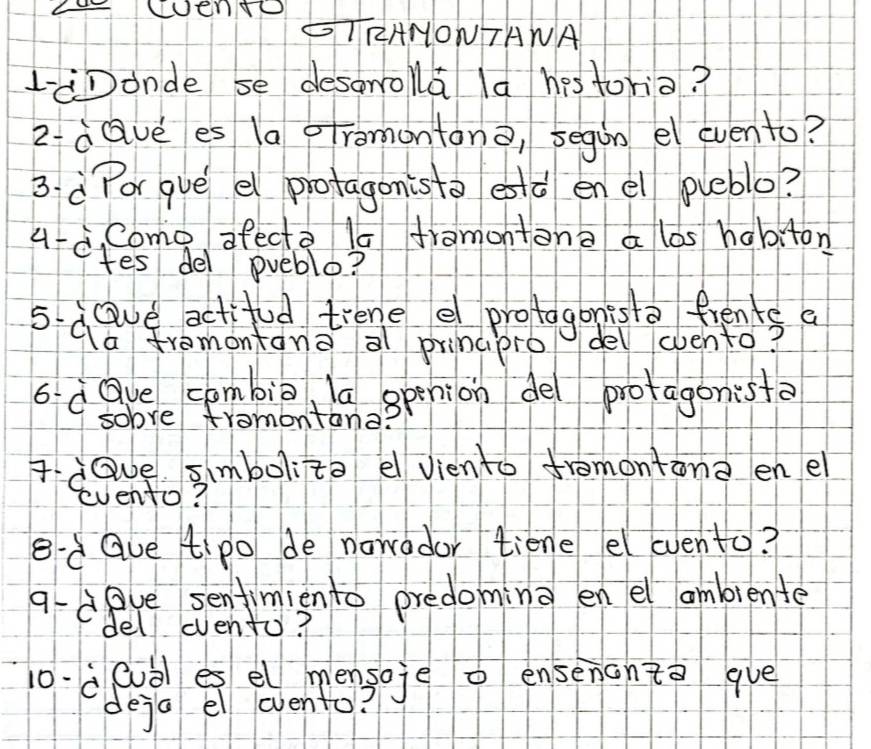 2do cuento
TRAMONTANA
1-¿Donde se desarrolla la historia?
2-¿Qué es la Tramontana, según el cuento?
3-¿Por qué el protagonista está en el pueblo?
4-¿Como afecta la tramontana a los habitan
tes del pueblo?
5-¿Qué actitud tiene el protagonista frente a
la tramontana al principio del cuento?
6-¿Que cambia la openión del protagonista
sobre tramontana?
7-¿Que simboliza el viento tramontana en el
cuento?
8-¿Que tipo de narrador tiene el cuento?
9-¿Que sentimiento predomina en el ambiente
del cuento?
10-¿Cuál es el mensaje o enseñanza que
deja el cuento?